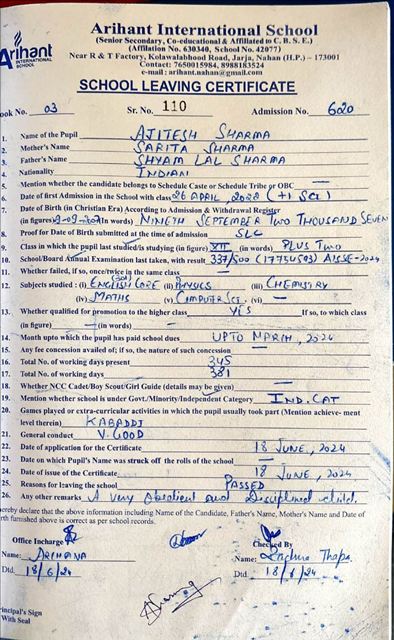 Arihant International School
Arihant
INTERNATIONAL
SCHOOL
(Senior Secondary, Co-educational & Affiliated to C. B. S. E.)
(Affiliation No. 630340, School No. 42077)
Near R & T Factory, Kolawalabhood Road, Jarja, Nahan (H.P.) – 173001
Contact: 7650015984, 8988183524
e-mail: arihant.nahan@gmail.com
SCHOOL LEAVING CERTIFICATE
ook No. 03 Sr. No. 110 Admission No. 620
1. Name of the Pupil AJITESH SHARMA
2. Mother's Name SARITA SHARMA
3. Father's Name SHYAM LAL SHARMA
4. Nationality INDIAN
5. Mention whether the candidate belongs to Schedule Caste or Schedule Tribe or OBC —
6. Date of first Admission in the School with class 26 APRIL, 2022 (+1 Sci)
7. Date of Birth (in Christian Era) According to Admission & Withdrawal Register
(in figures) 9-09-2007 (In words) NINETH SEPTEMBER TWO THOUSAND SEVEN
8. Proof for Date of Birth submitted at the time of admission SLC
9. Class in which the pupil last studied/is studying (in figure) XII (in words) PLUS TWO
10. School/Board Annual Examination last taken, with result 337/500 AISSE-2024
11. Whether failed, if so, once/twice in the same class —
12. Subjects studied : (i) ENGLISH CORE (301) (ii) PHYSICS (iii) CHEMISTRY
(iv) MATHS (v) COMPUTER SC. (vi) —
13. Whether qualified for promotion to the higher class YES If so, to which class
(in figure) — (in words) —
14. Month upto which the pupil has paid school dues UPTO MARCH, 2024
15. Any fee concession availed of; if so, the nature of such concession —
16. Total No. of working days present 345
17. Total No. of working days 381
18. Whether NCC Cadet/Boy Scout/Girl Guide (details may be given) —
19. Mention whether school is under Govt./Minority/Independent Category IND. CAT
20. Games played or extra-curricular activities in which the pupil usually took part (Mention achieve- ment
level therein) KABADDI
21. General conduct V. GOOD
22. Date of application for the Certificate 18 JUNE, 2024
23. Date on which Pupil's Name was struck off the rolls of the school —
24. Date of issue of the Certificate 18 JUNE, 2024
25. Reasons for leaving the school PASSED
26. Any other remarks A very obedient and Disciplined child.
hereby declare that the above information including Name of the Candidate, Father's Name, Mother's Name and Date of
rth furnished above is correct as per school records.
Office Incharge Checked By
Name: ARCHANA Name: Thapa
Dtd. 18/6/24 Dtd. 18/6/24
rincipal's Sign
With Seal